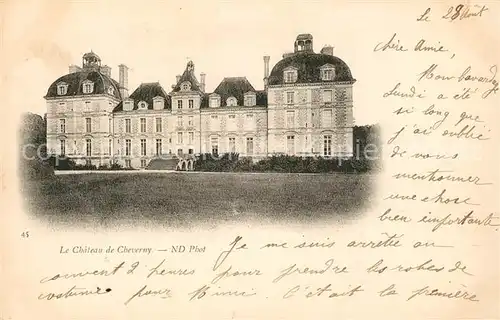 Le 28 Août
chère Amie,
Mon bavardage
Lundi a été
si long que
j'ai oublié
de vous
mentionner
une chose
bien importante
45
Le Château de Cheverny. — ND Phot
Je me suis arrêtée au
couvent 2 heures pour prendre les robes de
costume pour Mimi. C'était la première